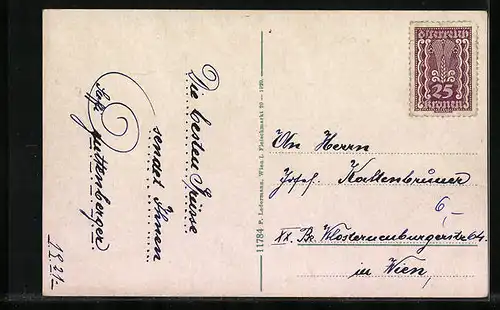 Die besten Grüsse
sendet Ihnen
Guttenberger
11784 P. Ledermann, Wien I. Fleischmarkt 20 — 1920.
Österreich
25
Kronen
An Herrn
Josef Kaltenbrunner
6,-
XX. Bz. Klosterneuburgerstr. 64.
in Wien